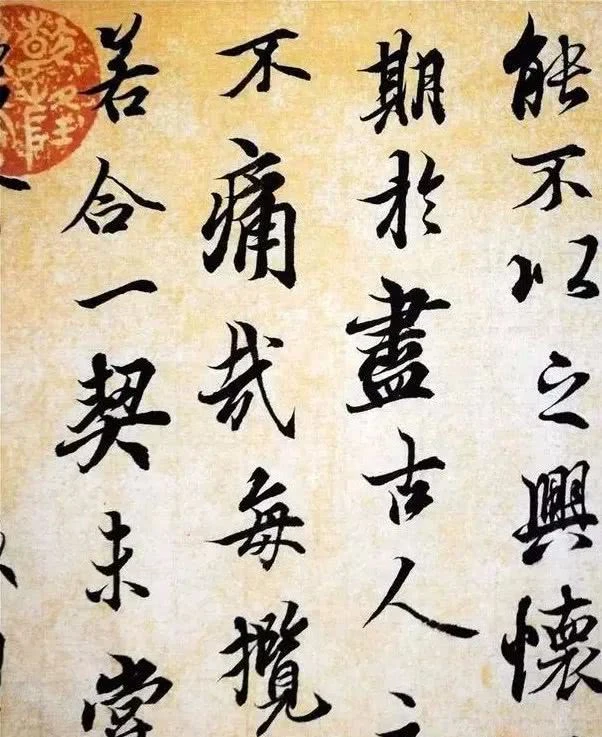 能不以之興懷
期於盡古人
不痛哉每攬
若合一契未甞